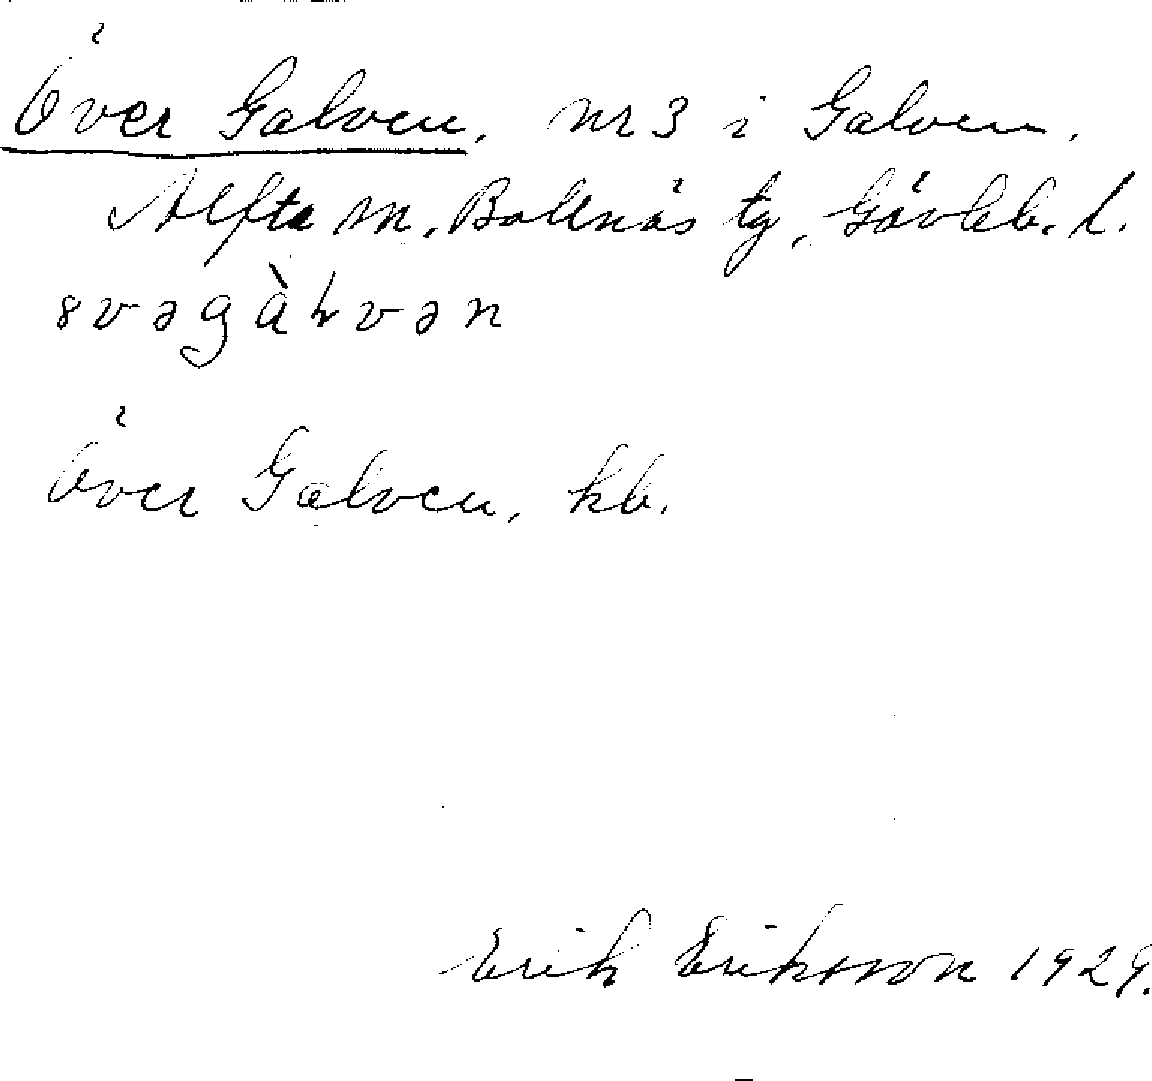 Över Galven, nr 3 i Galven,
Alfta sn, Bollnäs tg, Gävleb. l.
Över Galven, kb.
Erik Eriksson 1929.